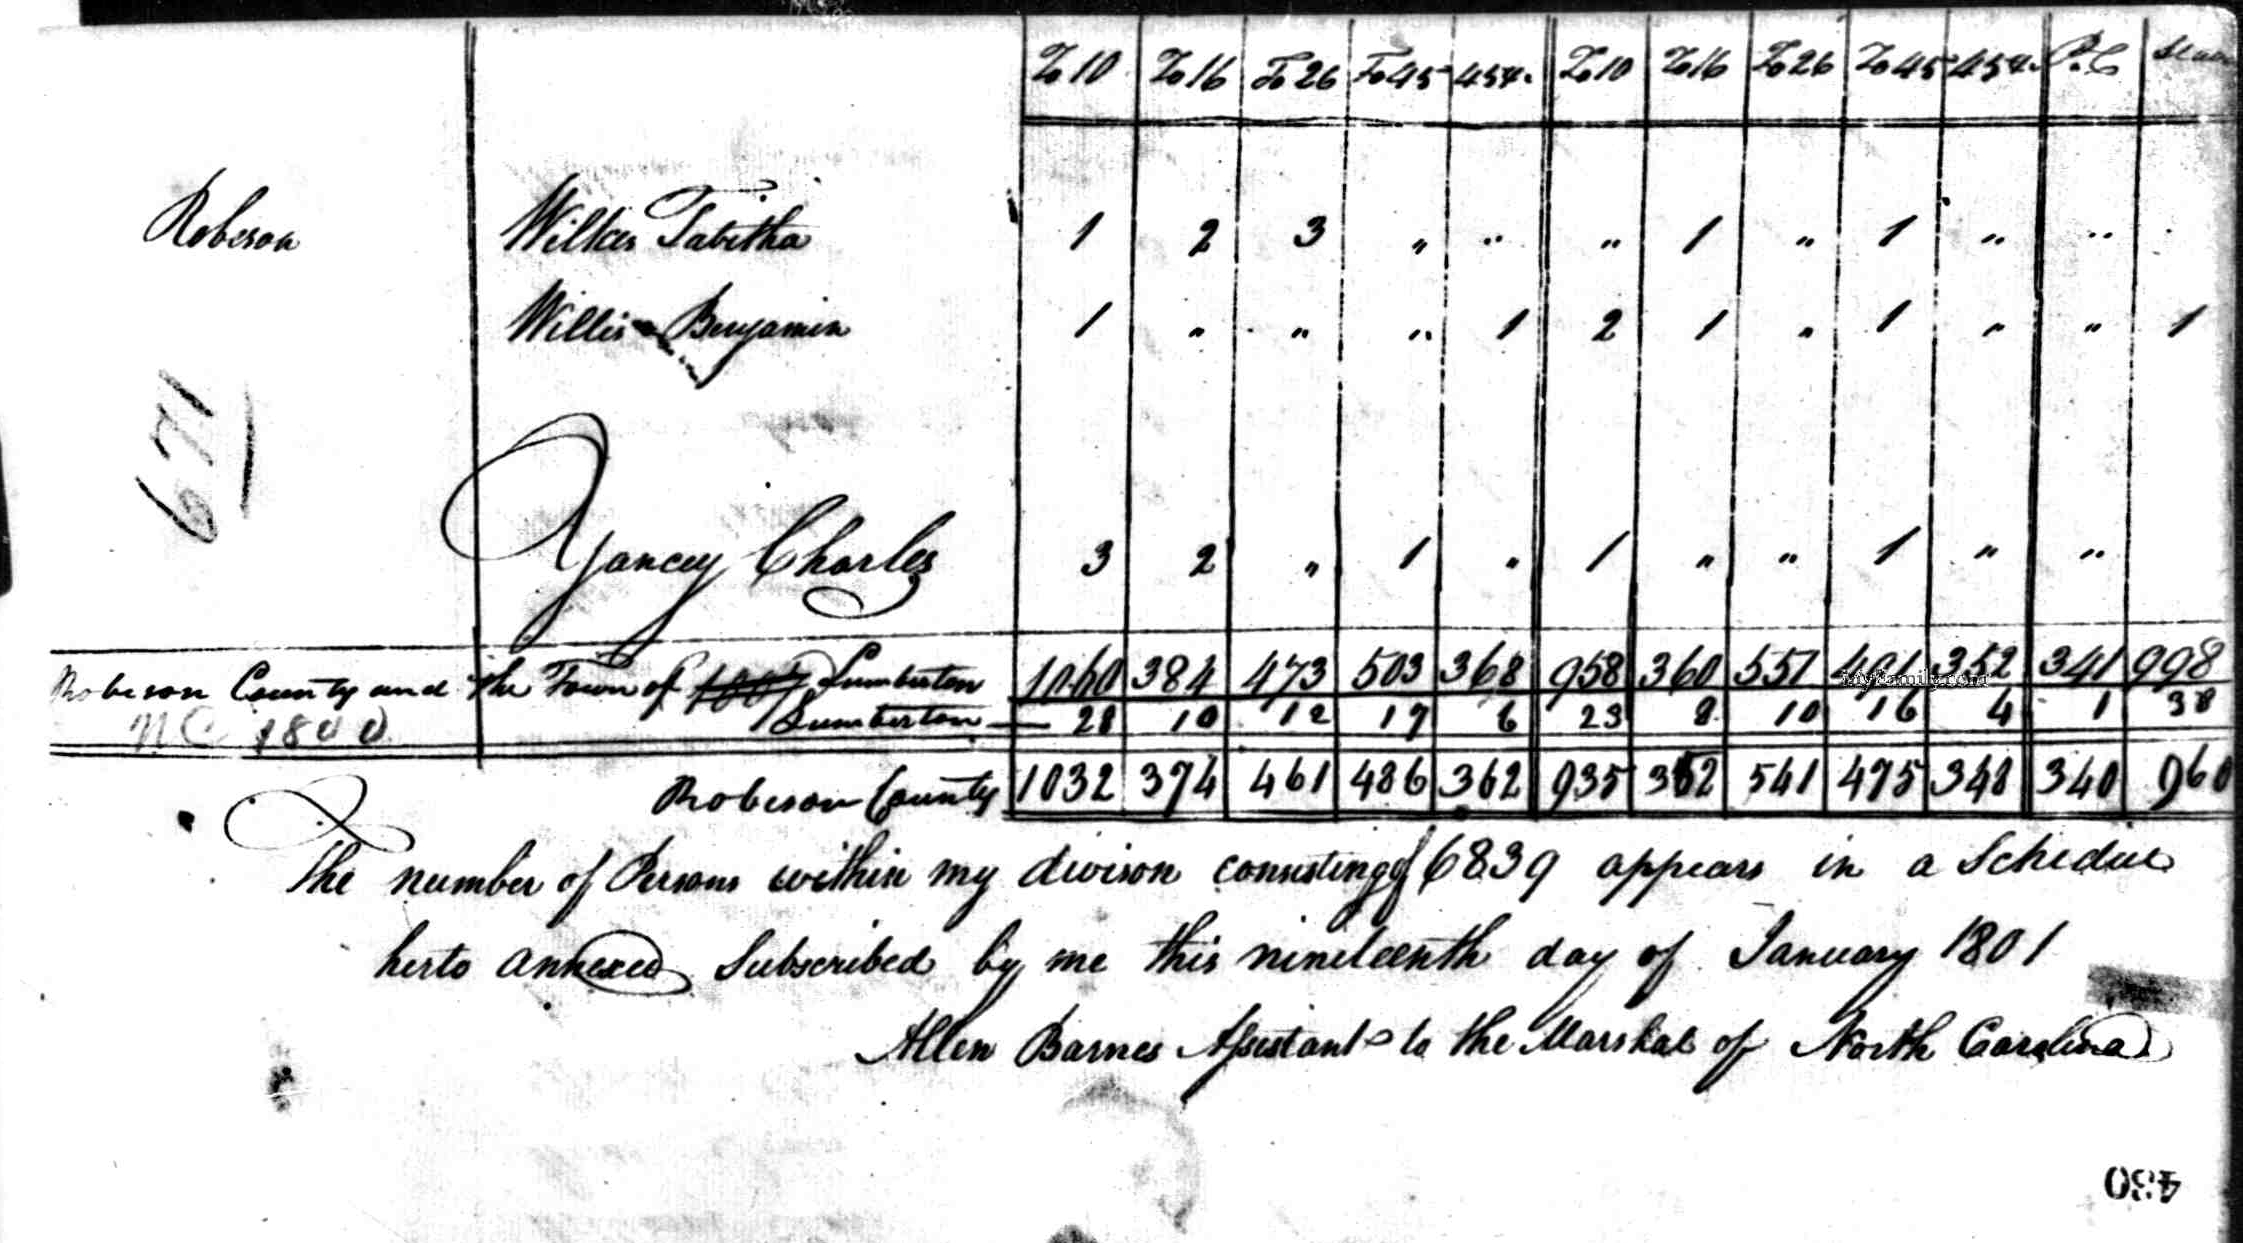 To 10 To 16 To 26 To 45 45 &. To 10 To 16 To 26 To 45 45 &. P.C
Roberson Wilkes Tabitha 1 2 3 " " " 1 " 1 " "
Willis Benjamin 1 " " " 1 2 1 " 1 " " 1
671
Yancey Charles 3 2 " 1 " 1 " " 1 " "
Roberson County and the Town of Lumberton 1060 384 473 503 368 958 360 551 491 352 341 998
Myfamily.com
NC 1800 Lumberton — 28 10 12 17 6 23 8 10 16 4 1 38
Roberson County 1032 374 461 486 362 935 352 541 475 348 340 960
The number of Persons within my divison consisting of 6839 appears in a Schedule
herto annexed Subscribed by me this nineteenth day of January 1801
Allen Barnes Assistant to the Marshal of North Carolina
430